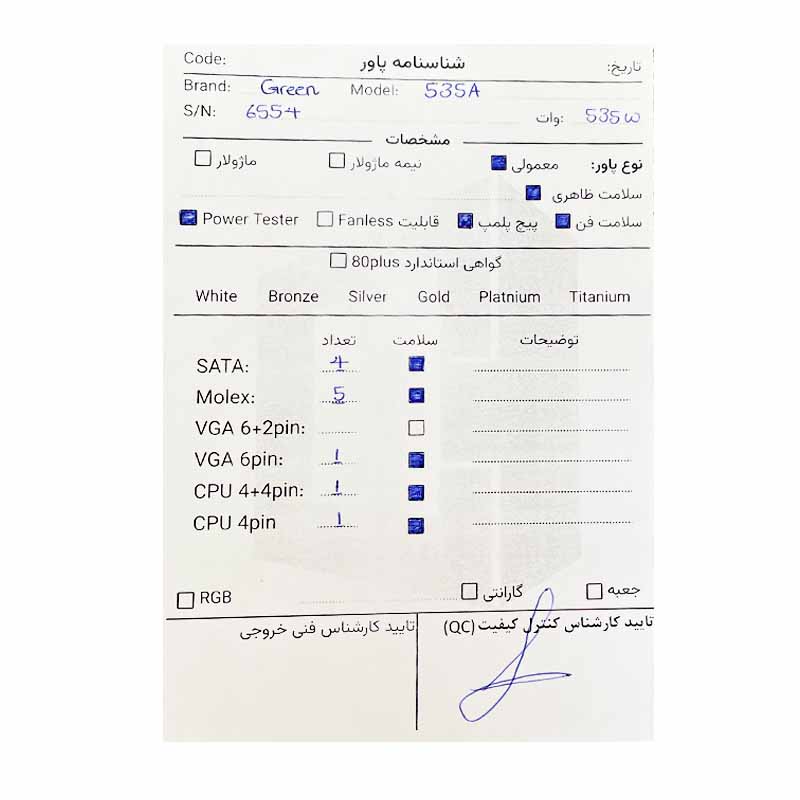 Code: شناسنامه پاور تاریخ:
Brand: Green Model: 535A
S/N: 6554 وات: 535w
مشخصات
نوع پاور: معمولی نیمه ماژولار ماژولار
سلامت ظاهری
سلامت فن پیچ پلمپ قابلیت Fanless Power Tester
گواهی استاندارد 80plus
White Bronze Silver Gold Platnium Titanium
تعداد سلامت توضیحات
SATA: 4
Molex: 5
VGA 6+2pin:
VGA 6pin: 1
CPU 4+4pin: 1
CPU 4pin 1
RGB گارانتی جعبه
تایید کارشناس کنترل کیفیت (QC) تایید کارشناس فنی خروجی